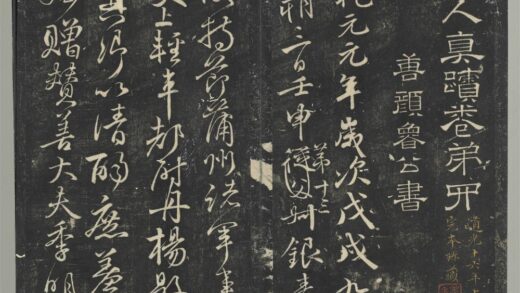 人真蹟卷第
唐顏魯公書
道光十六年
元元年歲次戊戌九
朔三日壬申第十三從父叔銀青
持節蒲州諸軍事
上輕車都尉丹楊縣
真卿以清酌庶羞
贈贊善大夫季明